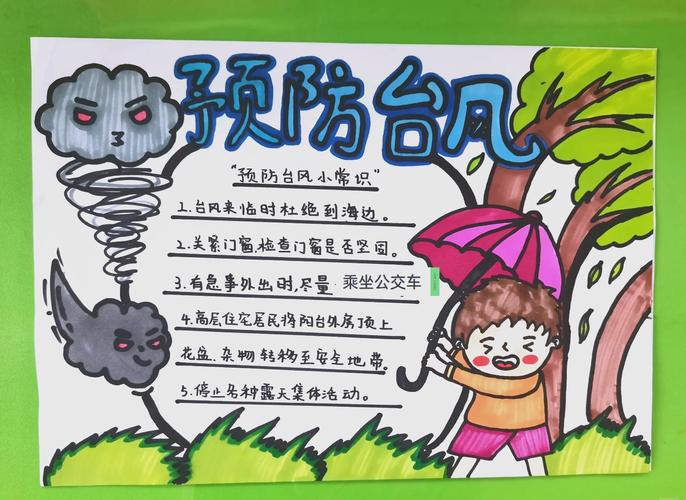 预防台风
"预防台风小常识"
1.台风来临时杜绝到海边。
2.关紧门窗,检查门窗是否坚固。
3.有急事外出时,尽量 乘坐公交车
4.高层住宅居民将阳台外房顶上
花盆、杂物转移至安全地带。
5.停止各种露天集体活动。